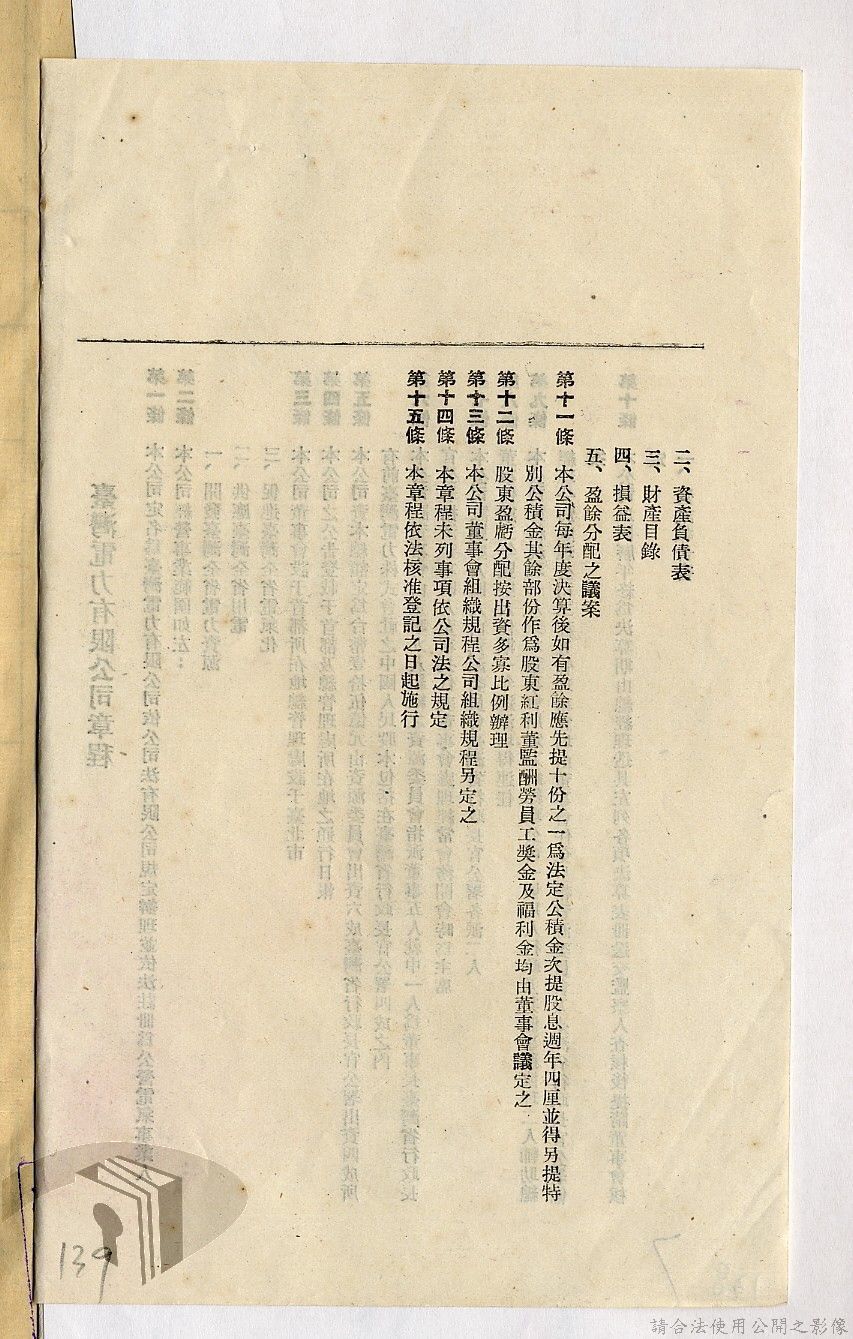 二、資產負債表
三、財產目錄
四、損益表
五、盈餘分配之議案
第十一條　本公司每年度決算後如有盈餘應先提十份之一爲法定公積金次提股息週年四厘並得另提特
別公積金其餘部份作爲股東紅利董監酬勞員工獎金及福利金均由董事會議定之
第十二條　股東盈虧分配按出資多寡比例辦理
第十三條　本公司董事會組織規程公司組織規程另定之
第十四條　本章程未列事項依公司法之規定
第十五條　本章程依法核准登記之日起施行
139
7
請合法使用公開之影像